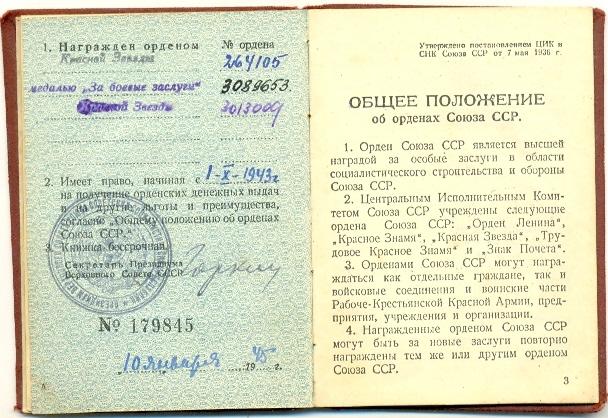 1. Награжден орденом № ордена
Красной Звезды 264105
медалью „За боевые заслуги" 3089653
Красной Звезды 3013009
2. Имеет право, начиная с 1-X-1943 г.
на получение орденских денежных выдач
и на другие льготы и преимущества,
согласно „Общему положению об орденах
Союза ССР."
3. Книжка бессрочная.
Секретарь Президиума
Верховного Совета СССР Горкин
№ 179845
„10" января 1945 г.
Утверждено постановлением ЦИК и
СНК Союза ССР от 7 мая 1936 г.
ОБЩЕЕ ПОЛОЖЕНИЕ
об орденах Союза ССР.
1. Орден Союза ССР является высшей
наградой за особые заслуги в области
социалистического строительства и обороны
Союза ССР.
2. Центральным Исполнительным Коми-
тетом Союза ССР учреждены следующие
ордена Союза ССР: „Орден Ленина",
„Красное Знамя", „Красная Звезда", „Тру-
довое Красное Знамя" и „Знак Почета".
3. Орденами Союза ССР могут на-
граждаться как отдельные граждане, так и
войсковые соединения и воинские части
Рабоче-Крестьянской Красной Армии, пред-
приятия, учреждения и организации.
4. Награжденные орденом Союза ССР
могут быть за новые заслуги повторно
награждены тем же или другим орденом
Союза ССР.
3